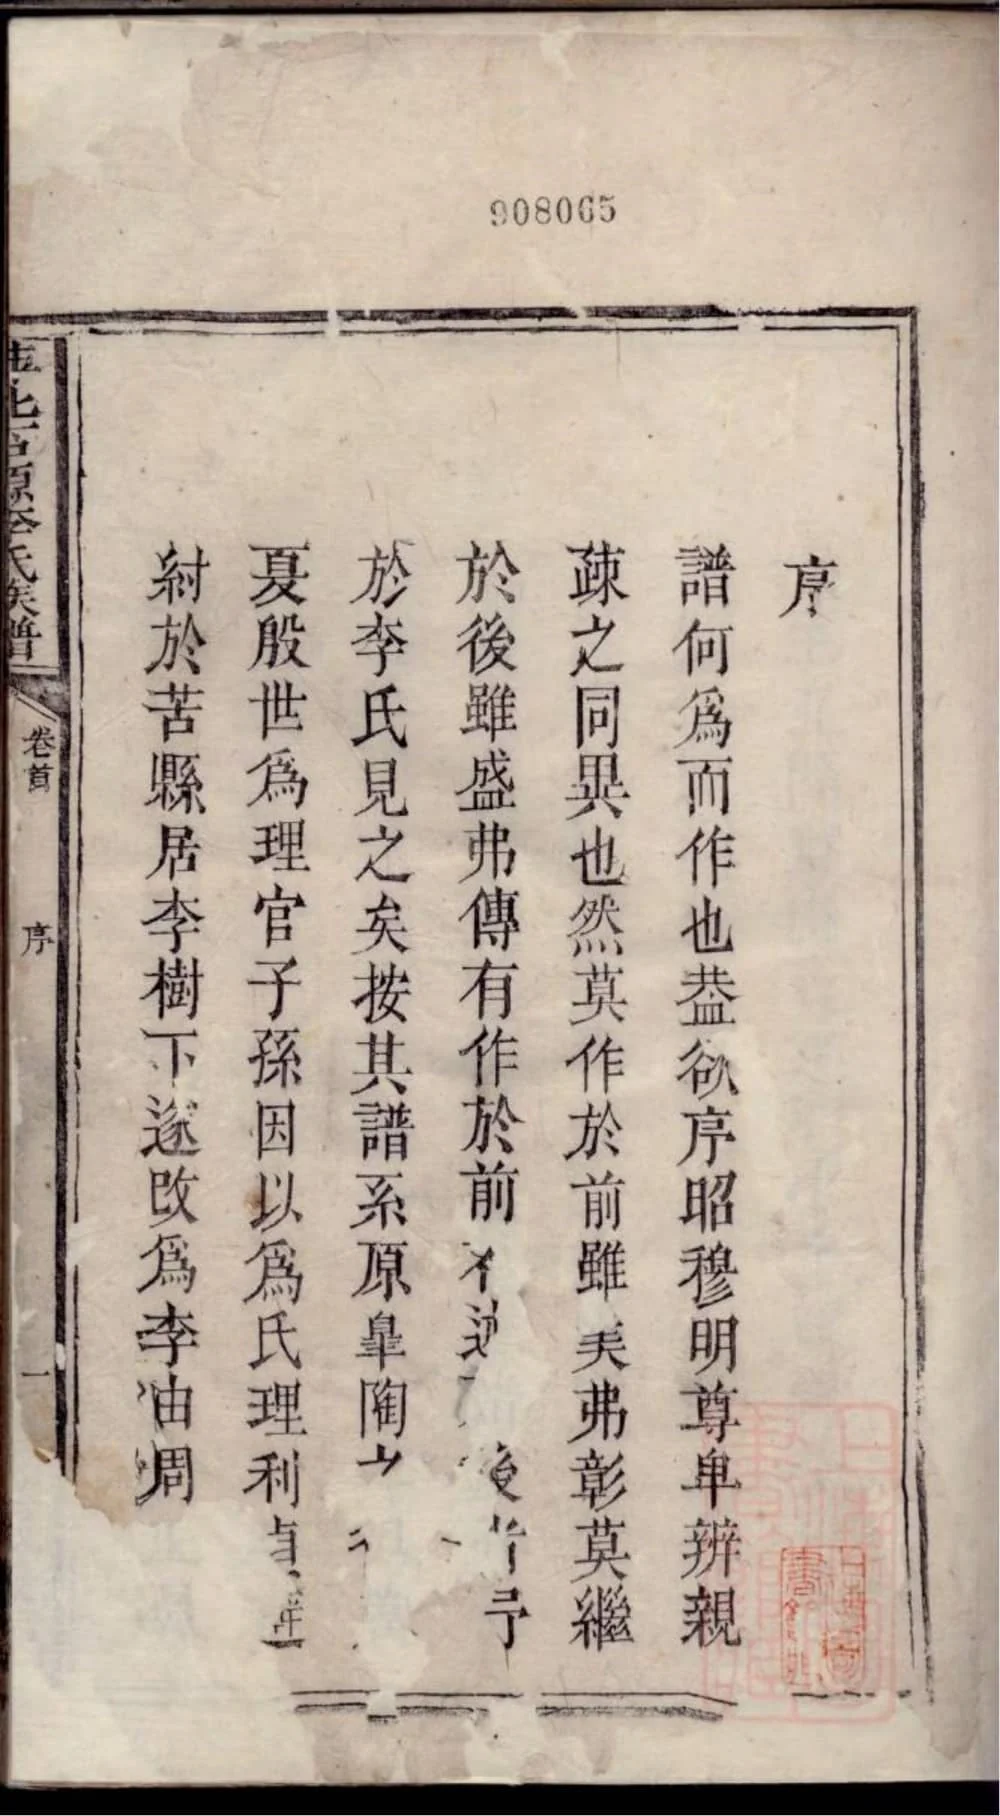 908065
序
譜何爲而作也葢欲序昭穆明尊卑辨親
疎之同異也然莫作於前雖美弗彰莫繼
於後雖盛弗傳有作於前
於李氏見之矣按其譜系原臯陶
夏殷世爲理官子孫因以爲氏理利貞
紂於苦縣居李樹下遂改爲李由周
李氏族譜
卷首
序
一